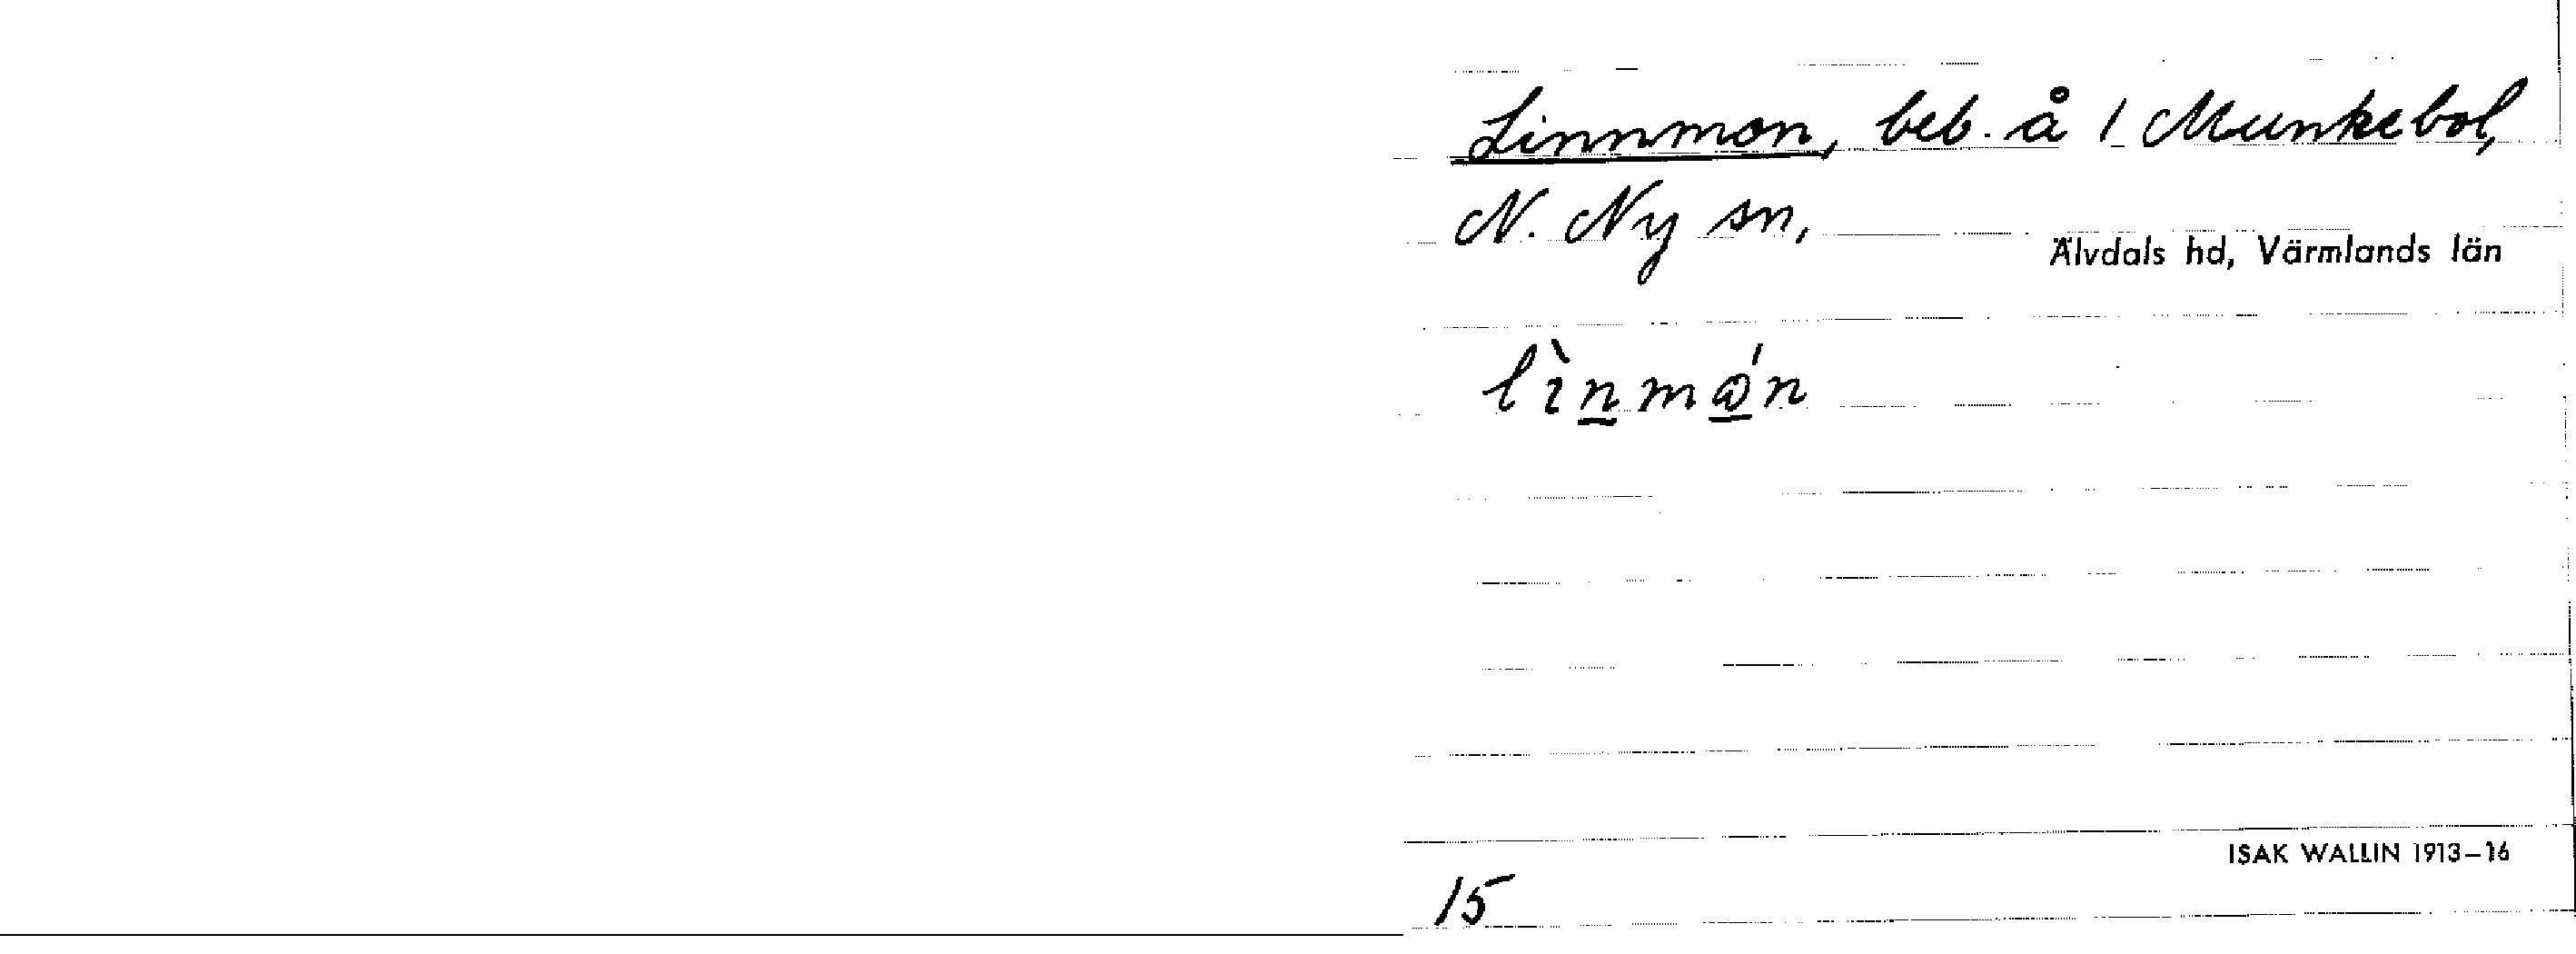 Linnmon, beb. å 1 Munkebol,
N. Ny sn,
Älvdals hd, Värmlands län
lìnmǿn
ISAK WALLIN 1913–16
15